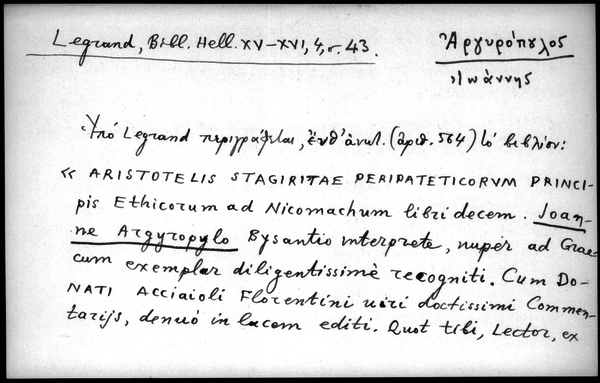 Legrand, Bibl. Hell. XV-XVI, 4, σ. 43.
Ἀργυρόπυλος
Ἰωάννης
Ὑπό Legrand περιγράφεται, ἔνθ' ἀνωτ. (ἀριθ. 564) τό βιβλίον:
« ARISTOTELIS STAGIRITAE PERIPATETICORVM PRINCI-
pis Ethicorum ad Nicomachum libri decem. Joan-
ne Argyropylo Bysantio interprete, nuper ad Grae-
cum exemplar diligentissimè recogniti. Cum Do-
NATI Acciaioli Florentini uiri doctissimi Commen-
tarijs, denuó in lucem editi. Quot tibi, Lector, ex